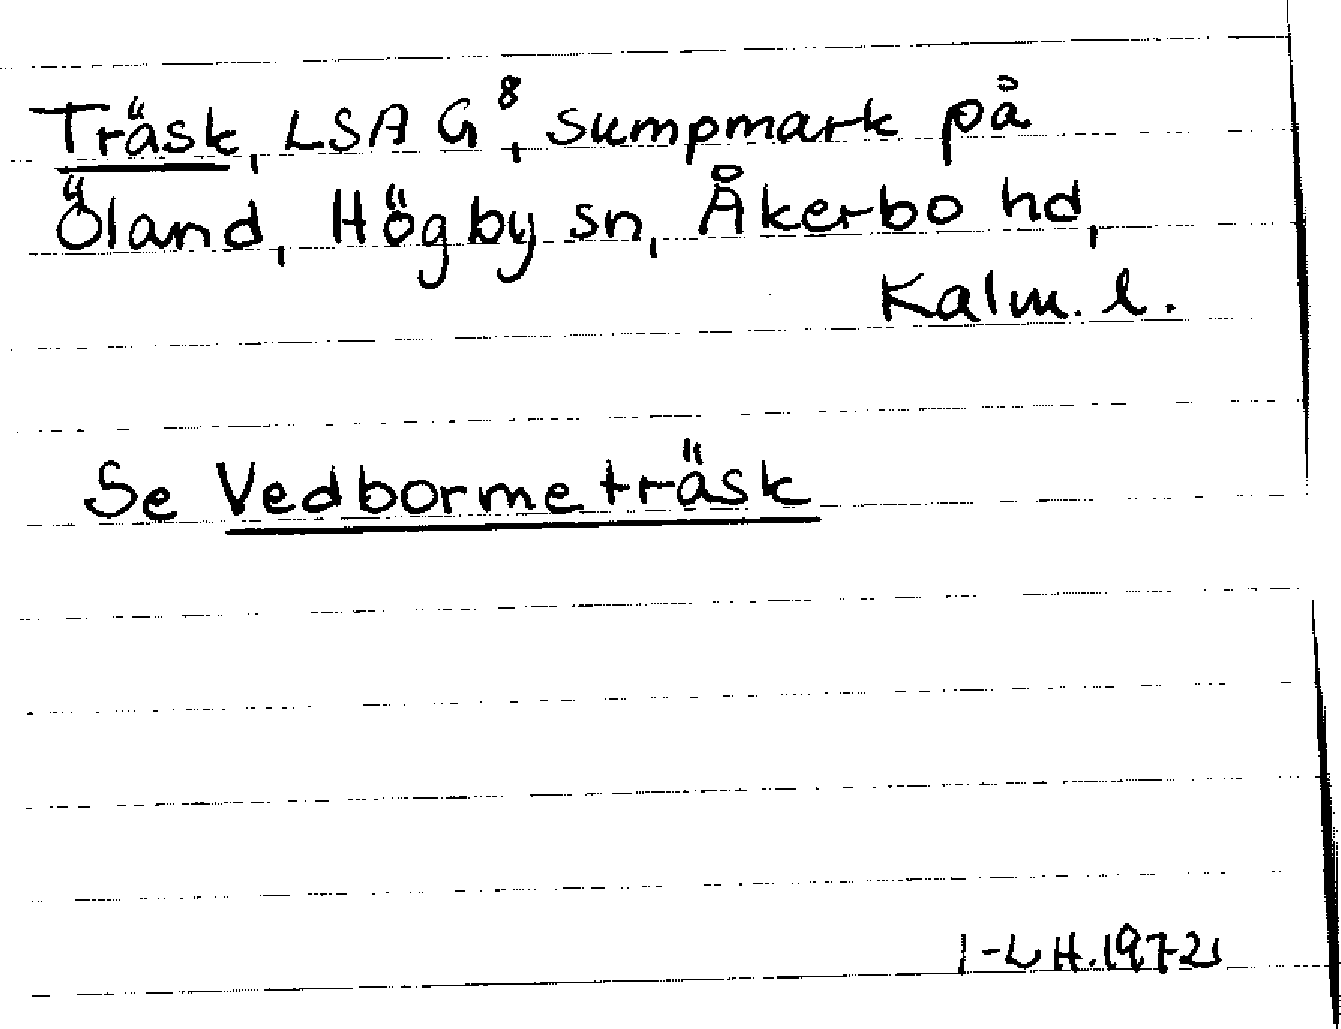 Träsk, LSA G⁸, sumpmark på
Öland, Högby sn, Åkerbo hd,
Kalm. l.
Se Vedborme träsk
I-L H. 1972